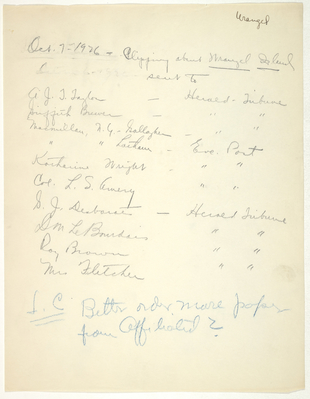 Wrangel
Oct. 7-1926 - Clipping about Wrangel Island
sent to
A J T Taylor — Herald-Tribune
Griffith Brewer — " "
Macmillan, N.Y. - Gallagher - " "
" " Latham - Eve. Post
Katharine Wright - " "
Col. L. S. Amery " "
D. J. Desbarats — Herald Tribune
LeBourdais " "
Roy Brown " "
Mrs Fletcher " "
I. C. Better order more paper
from Affiliated?